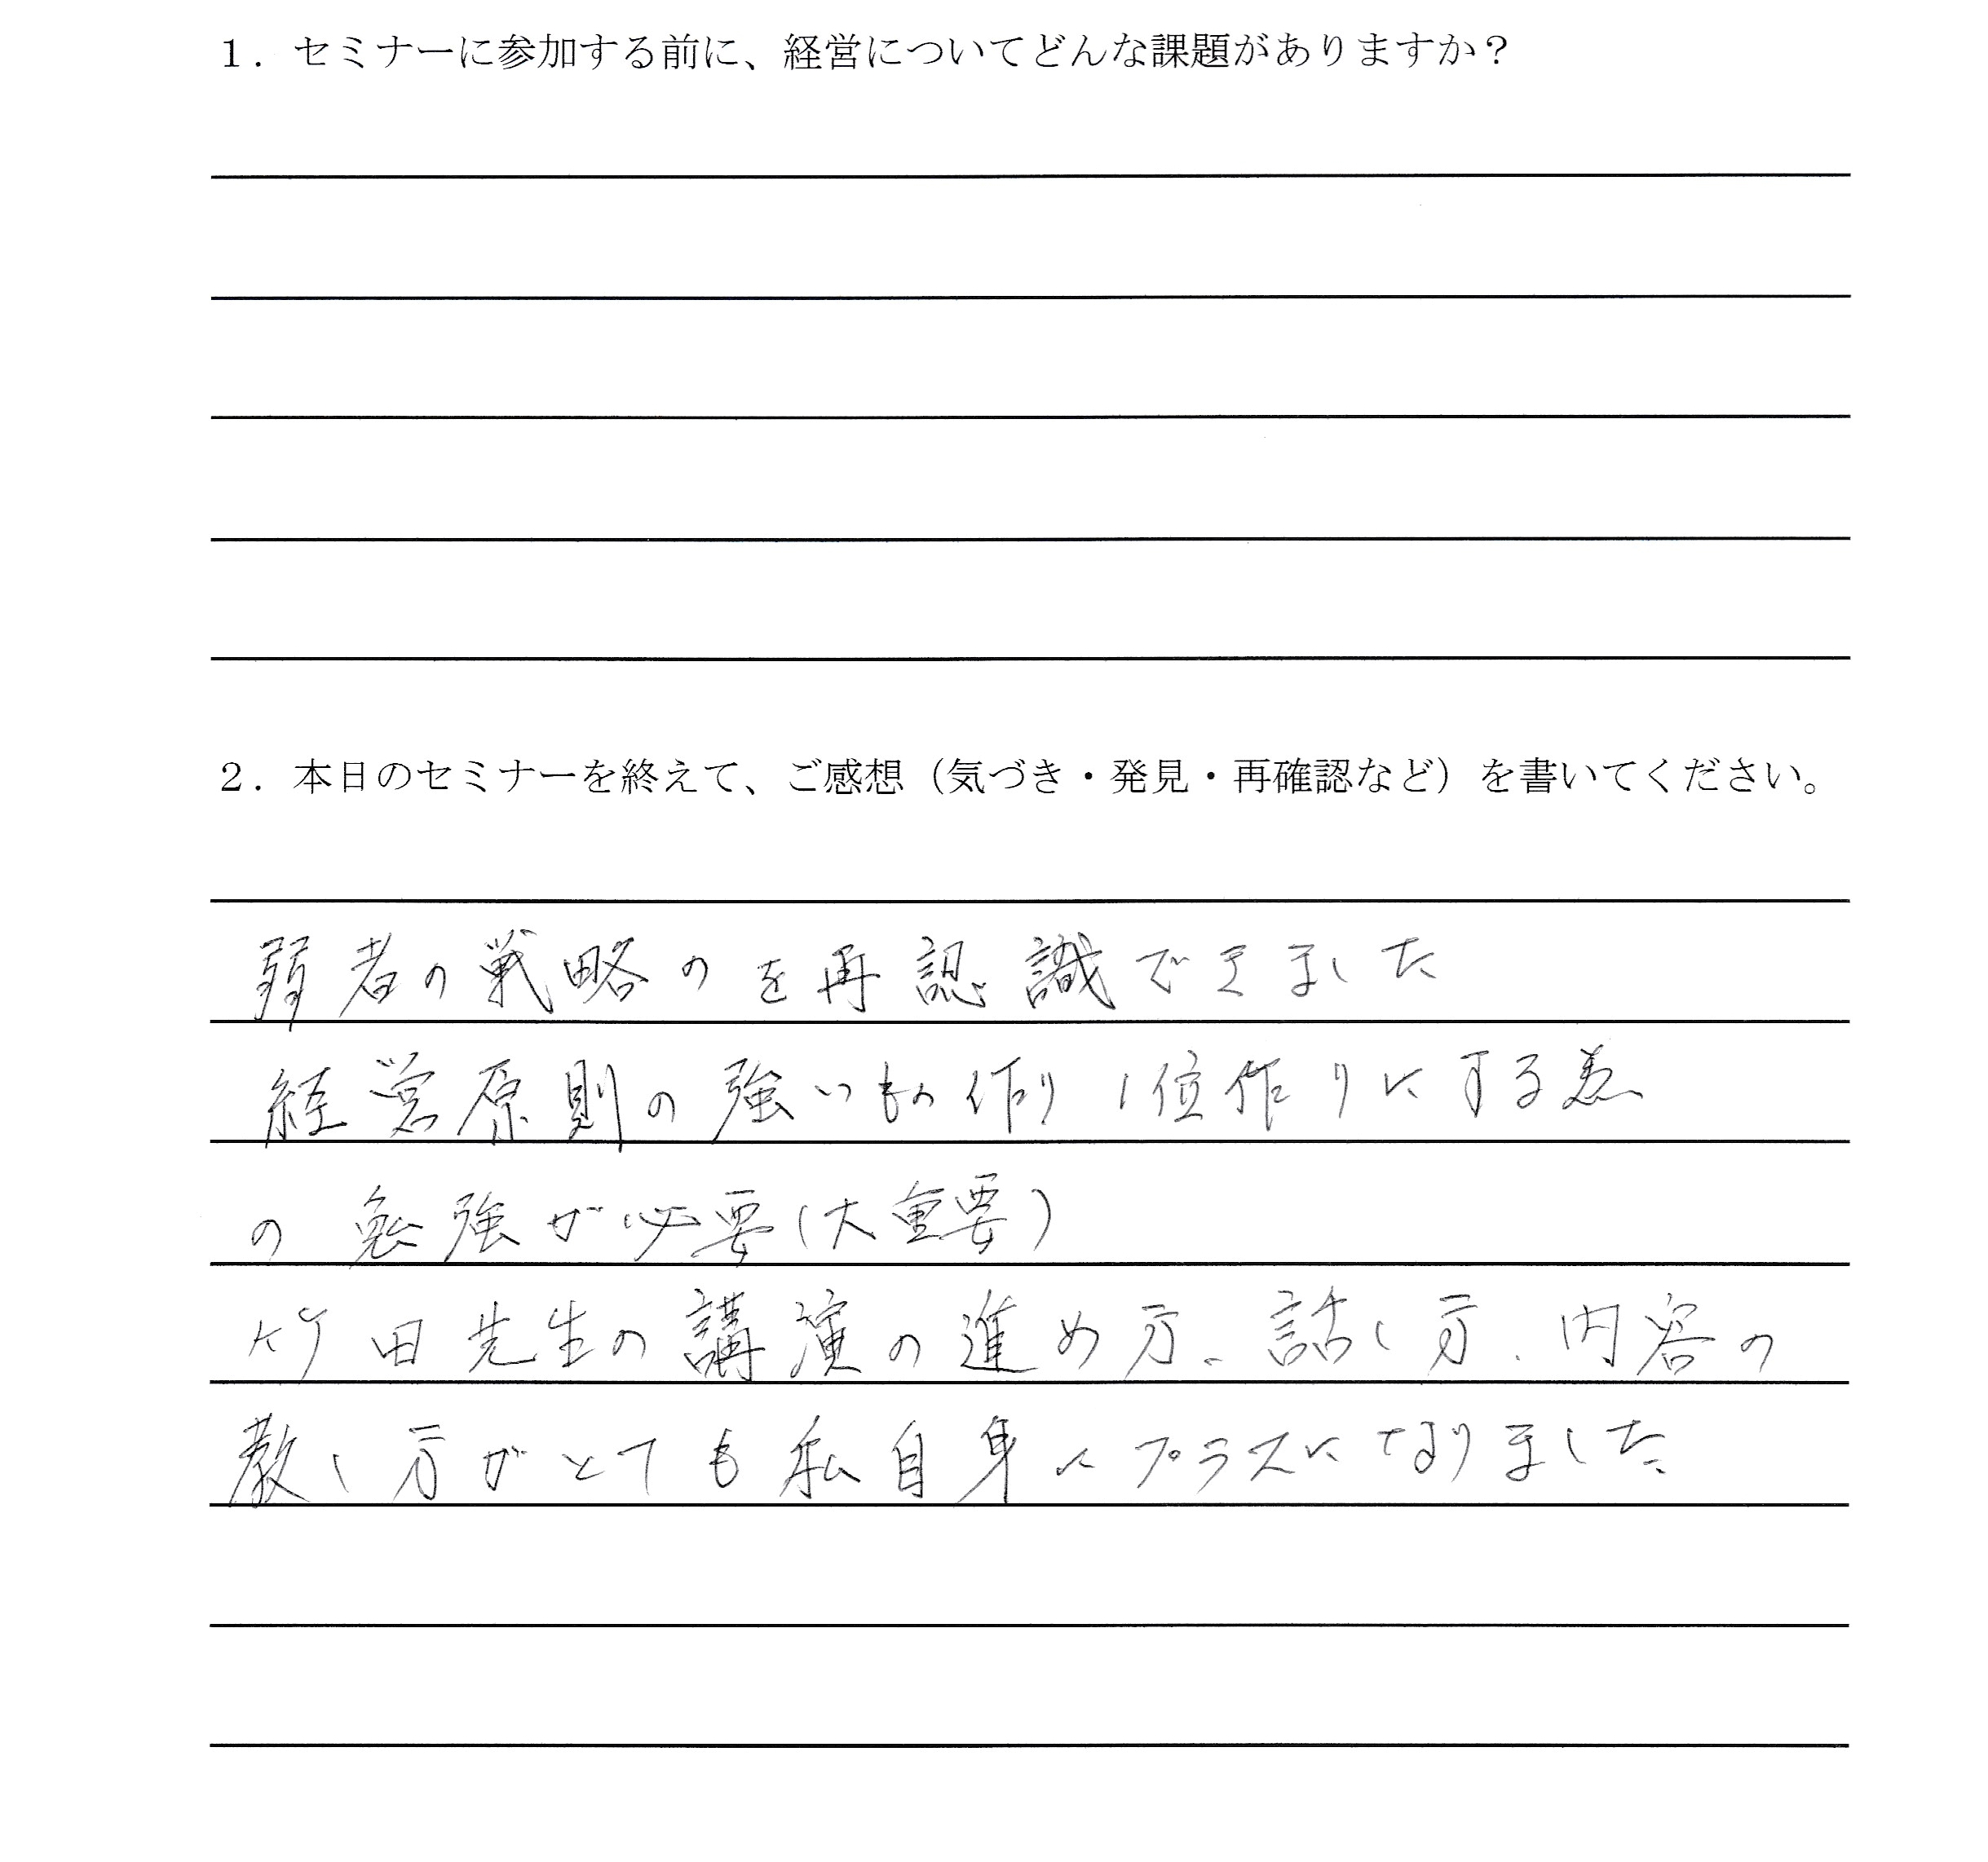 １．セミナーに参加する前に、経営についてどんな課題がありますか？
２．本日のセミナーを終えて、ご感想（気づき・発見・再確認など）を書いてください。
弱者の戦略のを再認識できました
経営原則の強いもの作り１位作りにする為
の勉強が必要(大重要)
竹田先生の講演の進め方、話し方、内容の
教し方がとても私自身にプラスになりました、